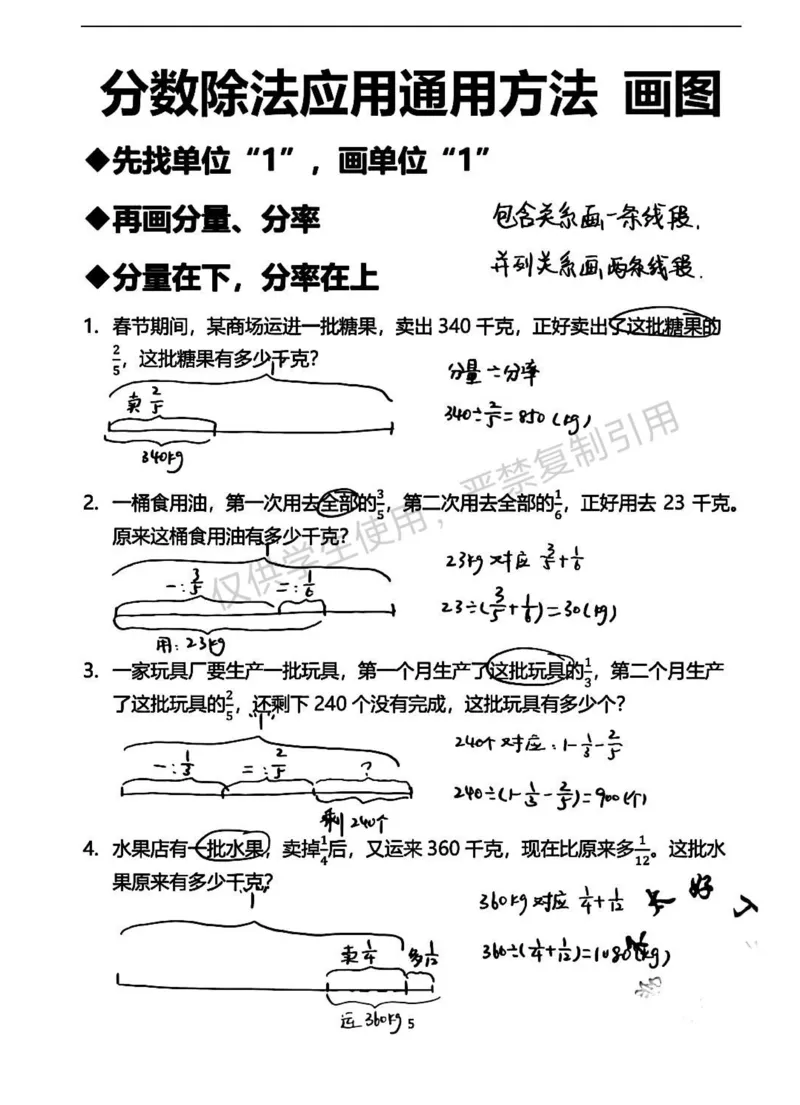 分数除法应用通用方法 画图
◆先找单位“1”，画单位“1”
◆再画分量、分率
包含关系画一条线段.
◆分量在下，分率在上
并列关系画两条线段.
1. 春节期间，某商场运进一批糖果，卖出 340 千克，正好卖出了这批糖果的
2/5，这批糖果有多少千克？
1
分量÷分率
卖 2/5
340÷2/5=850(kg)
340kg
仅供学生使用，严禁复制引用
2. 一桶食用油，第一次用去全部的3/5，第二次用去全部的1/6，正好用去 23 千克。
原来这桶食用油有多少千克？
1
23kg 对应 3/5+1/6
一:3/5 二:1/6
23÷(3/5+1/6)=30(kg)
用:23kg
3. 一家玩具厂要生产一批玩具，第一个月生产了这批玩具的1/3，第二个月生产
了这批玩具的2/5，还剩下 240 个没有完成，这批玩具有多少个？
“1”
240个对应:1-1/3-2/5
一:1/3 二:2/5 ?
240÷(1-1/3-2/5)=900(个)
剩240个
4. 水果店有一批水果，卖掉1/4后，又运来 360 千克，现在比原来多1/12。这批水
果原来有多少千克？
“1”
360kg对应 1/4+1/12
好
卖1/4 多1/12
360÷(1/4+1/12)=1080(kg)
运360kg
5